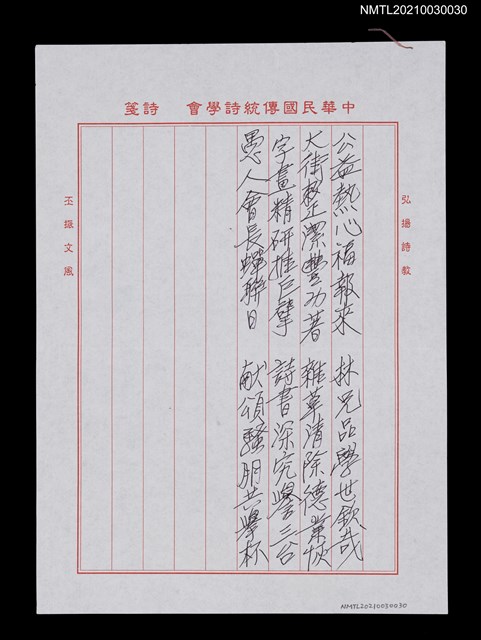 NMTL20210030030
中華民國傳統詩學會 詩箋
弘揚詩教
公益熱心福報來 林兄品學世欽哉
大街整潔豐功著 雜草清除德業恢
字畫精研推巨擘 詩書深究譽三台
愚人會長蟬聯日 献頌騷朋共舉杯
丕振文風
NMTL20210030030